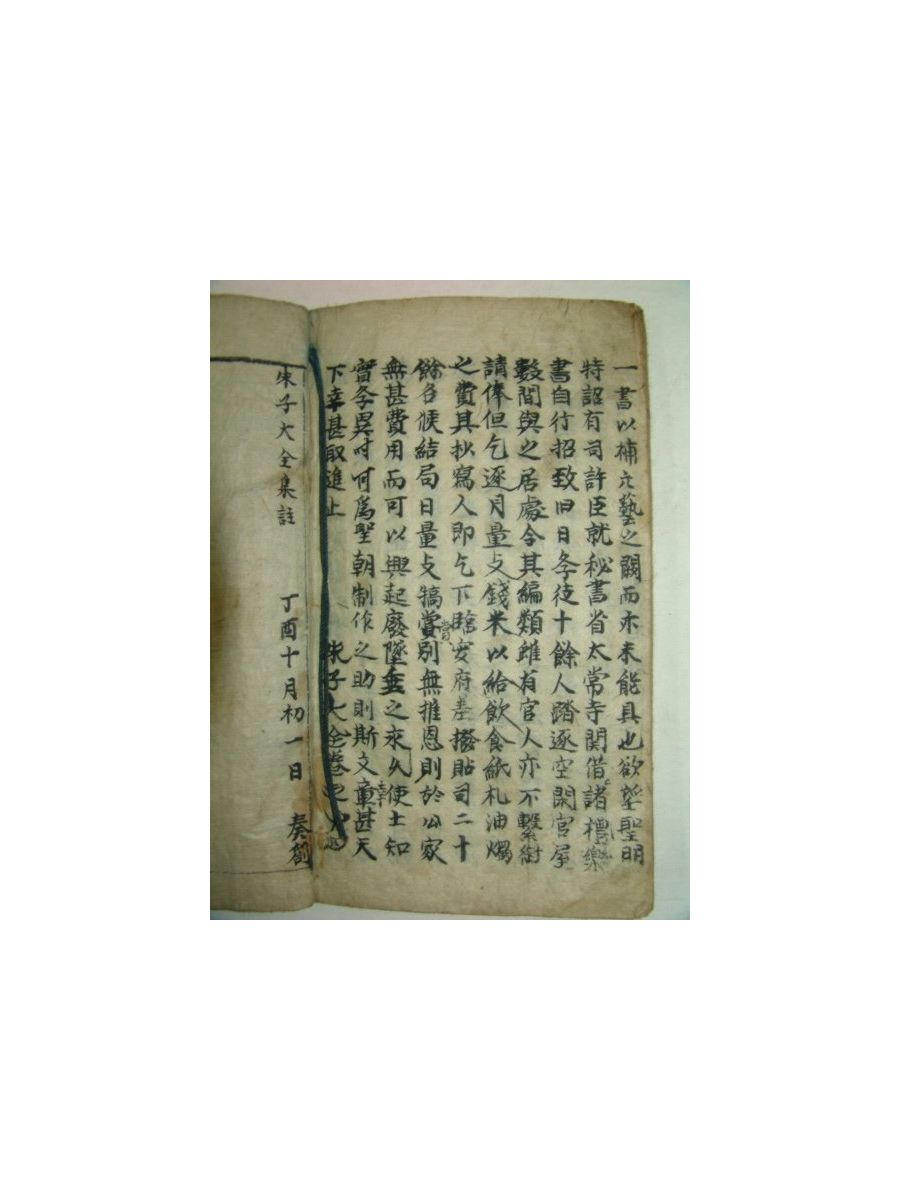 一書以補六藝之闕而亦未能具也欲望聖明
特詔有司許臣就秘書省太常寺関借諸禮樂
書自行招致旧日學徒十餘人踏逐空閑官屋
數間與之居處令其編類雖有官人亦不繫銜
請俸但乞逐月量支錢米以給飲食紙札油燭
之費其抄寫人即乞下臨安府差撥貼司二十
餘名候結局日量支犒賞別無推恩則於公家
無甚費用而可以興起廢墜垂之永久使士知
實學異時可爲聖朝制作之助則斯文幸甚天
下幸甚取進止 朱子大全卷之
朱子大全集註 丁酉十月初一日 奏劄